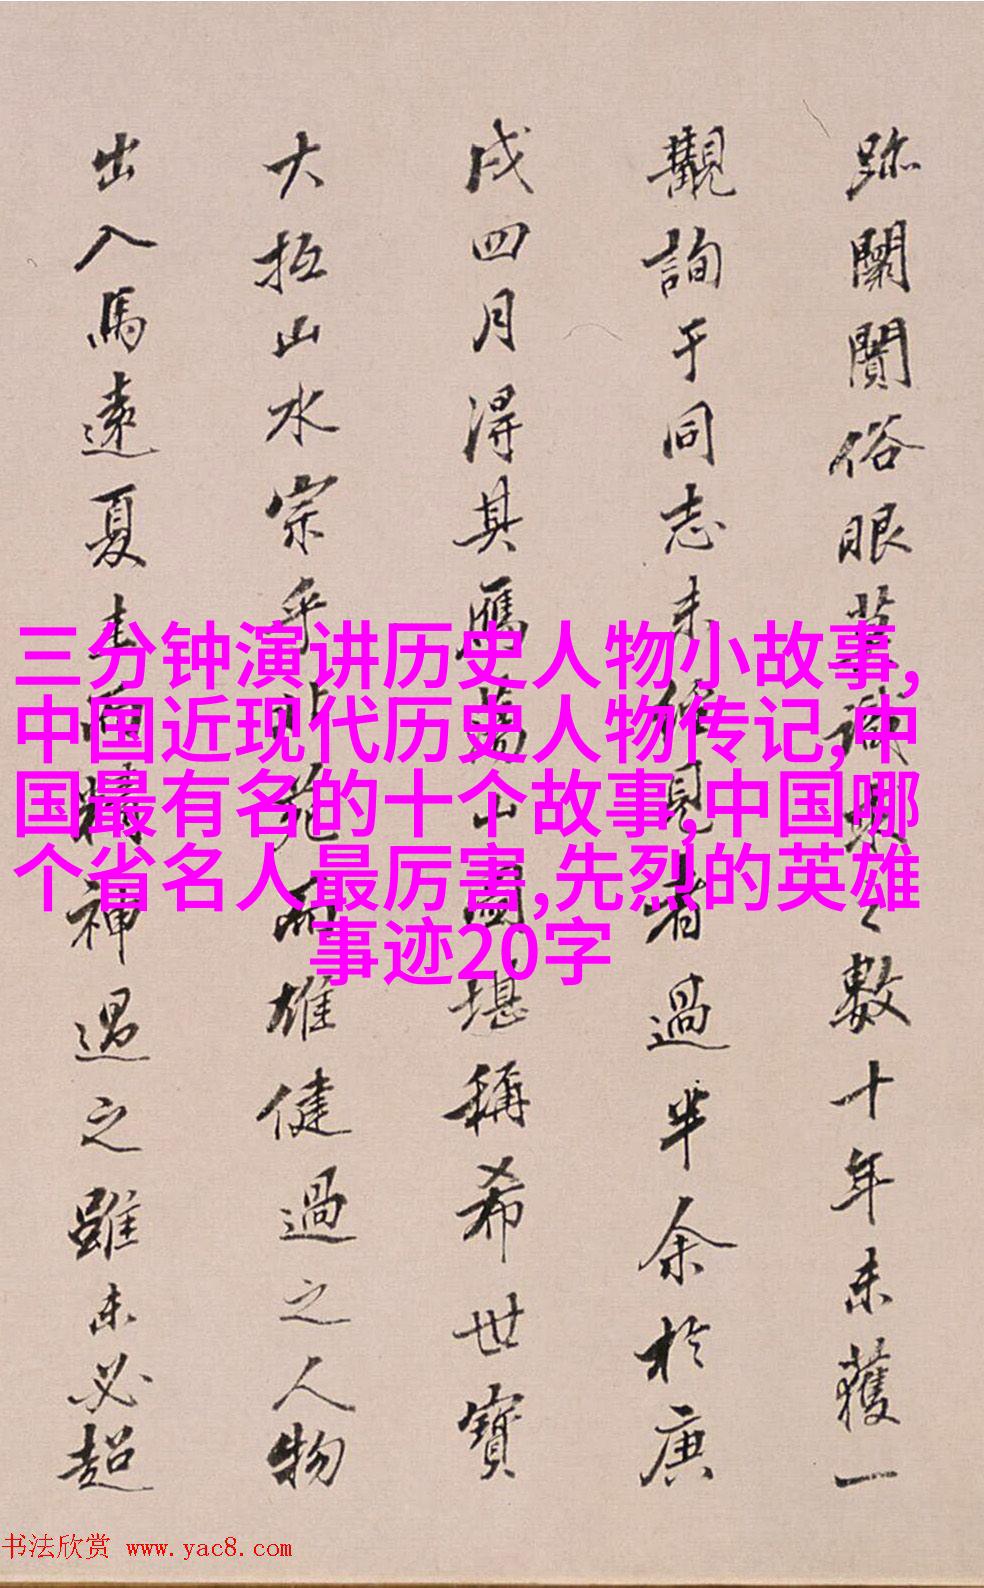 跡闤闠俗眼
數十年未獲一
觀詢于同志未
者過半余於庚
戌四月得其
堪稱希世寶
大抵山水宗
雄健過之人物
出入馬遠夏圭而
精神過之雖未必超
三分钟演讲历史人物小故事,
中国近现代历史人物传记,中
国最有名的十个故事,中国哪
个省名人最厉害,先烈的英雄
事迹20字
书法欣赏 www.yac8.com